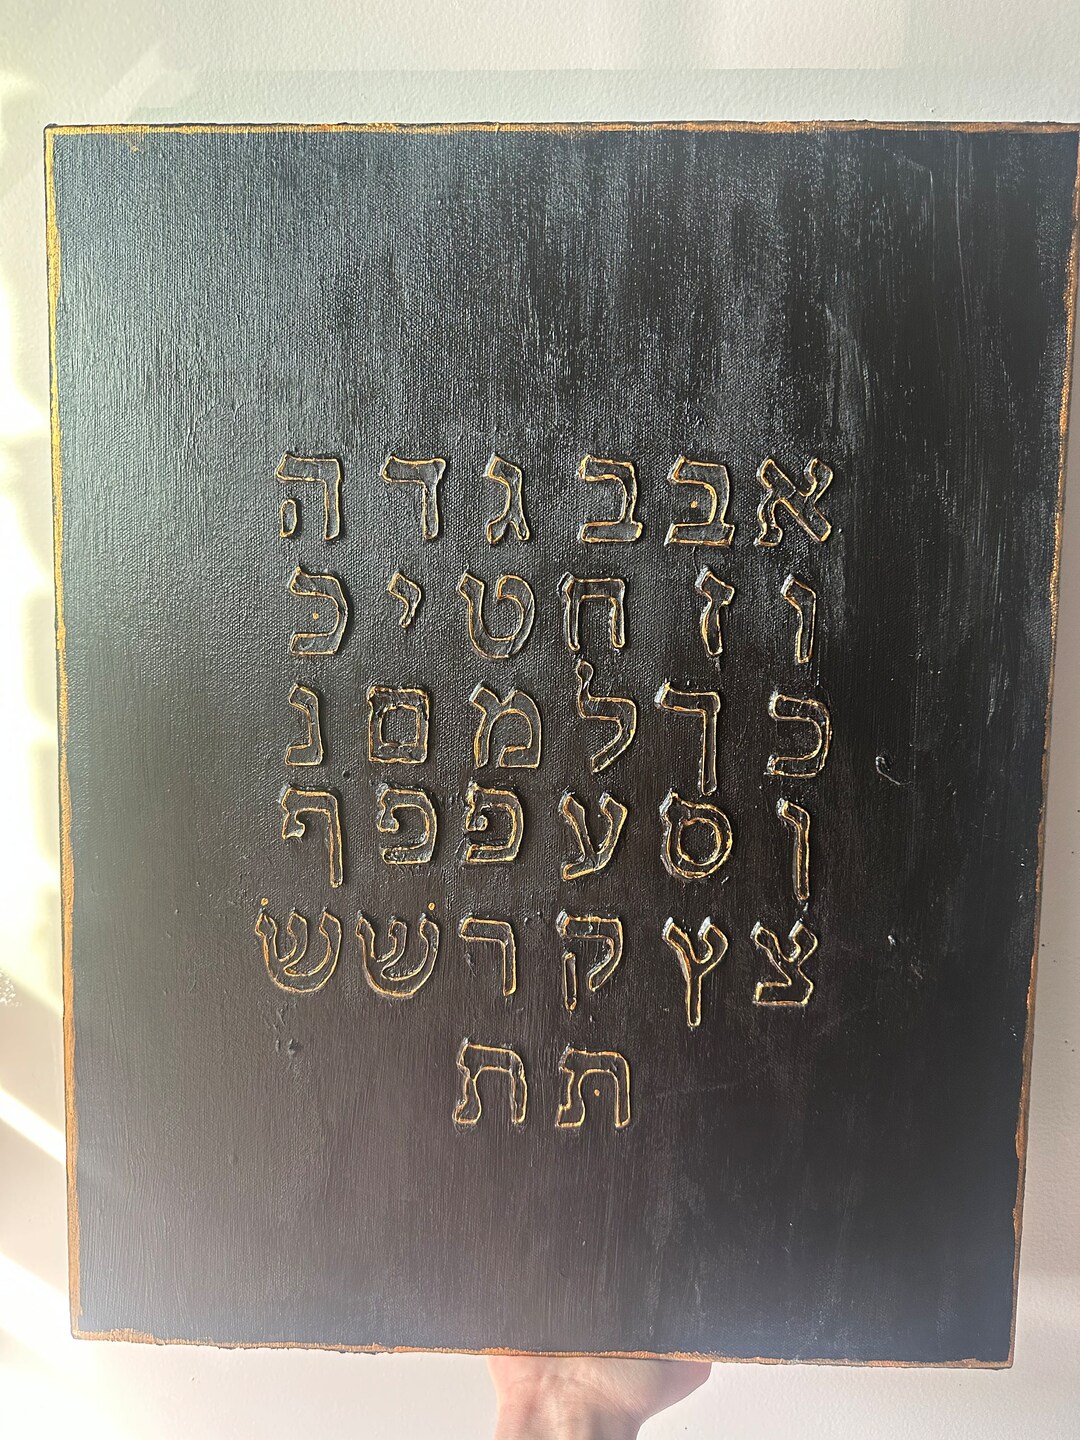 א בּ ב ג ד ה
ו ז ח ט י כּ
כ ך ל מ ם נ
ן ס ע פּ פ ף
צ ץ ק ר שׁ שׂ
תּ ת